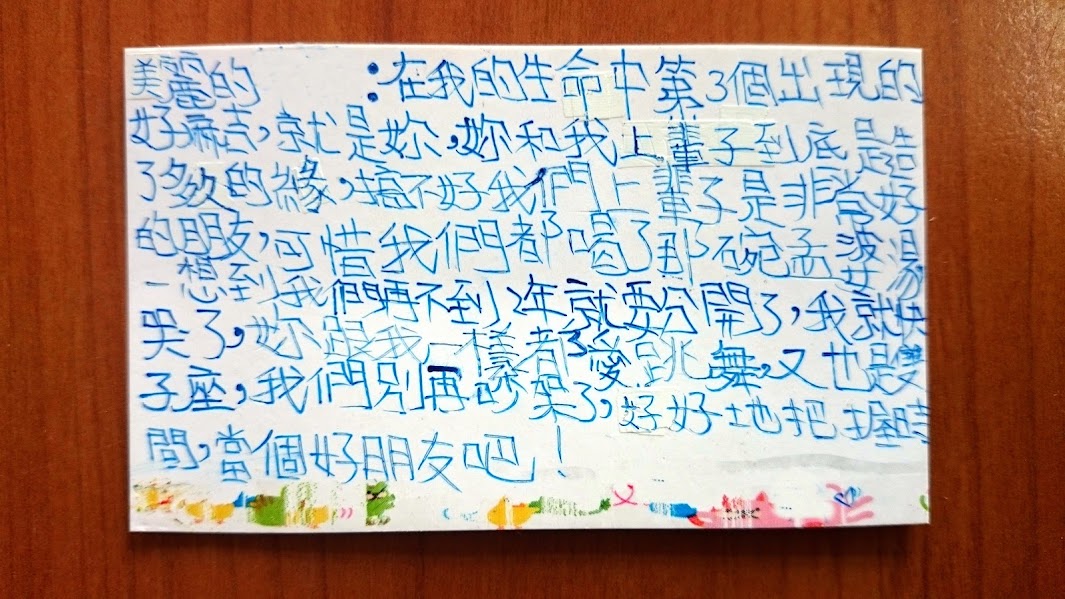 美麗的 :在我的生命中第3個出現的
好麻吉,就是妳,妳和我上輩子到底是造
了多久的緣,搞不好我們上輩子是非常好
的朋友,可惜我們都喝了那碗孟婆湯
一想到我們再不到2年就要分開了,我就快
哭了,妳跟我一樣都愛跳舞,又也是雙
子座,我們別再吵架了,好好地把握時
間,當個好朋友吧!